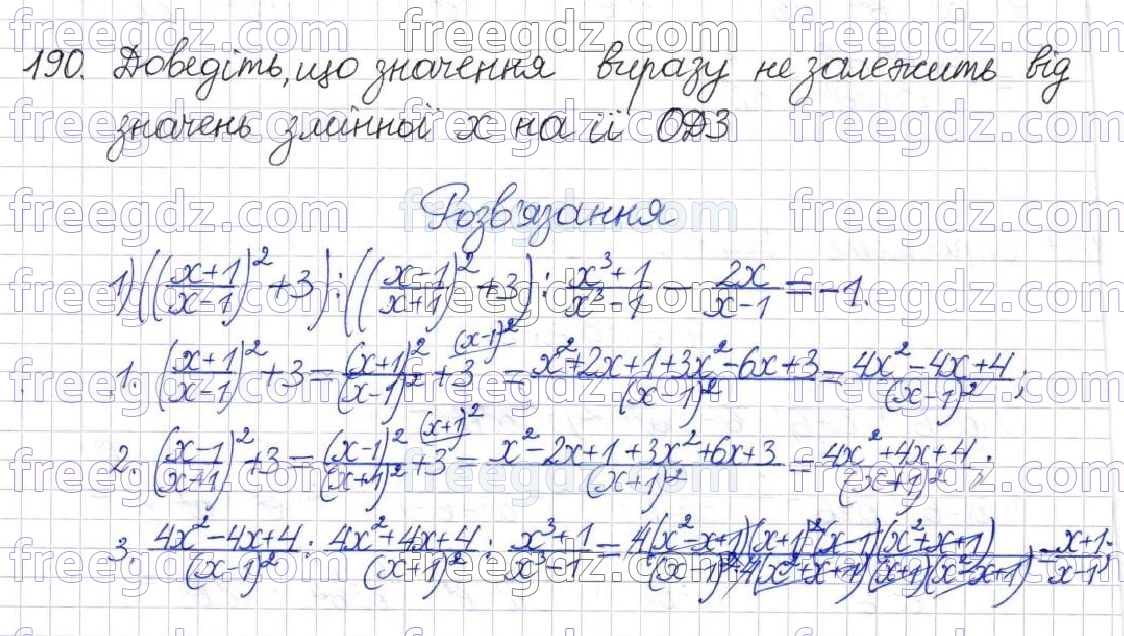 190. Доведіть, що значення виразу не залежить від
значень змінної x на її ОДЗ
Розв'язання
1) (((x+1)/(x-1))² + 3) : (((x-1)/(x+1))² + 3) : (x³+1)/(x³-1) - 2x/(x-1) = -1.
1. ((x+1)/(x-1))² + 3 = (x+1)²/(x-1)² + 3^{(x-1)²} = (x²+2x+1+3x²-6x+3)/(x-1)² = (4x²-4x+4)/(x-1)²;
2. ((x-1)/(x+1))² + 3 = (x-1)²/(x+1)² + 3^{(x+1)²} = (x²-2x+1+3x²+6x+3)/(x+1)² = (4x²+4x+4)/(x+1)²;
3. (4x²-4x+4)/(x-1)² : (4x²+4x+4)/(x+1)² : (x³+1)/(x³-1) = (4(x²-x+1)(x+1)²(x-1)(x²+x+1))/((x-1)²·4(x²+x+1)(x+1)(x²-x+1)) = (x+1)/(x-1);
freegdz.com